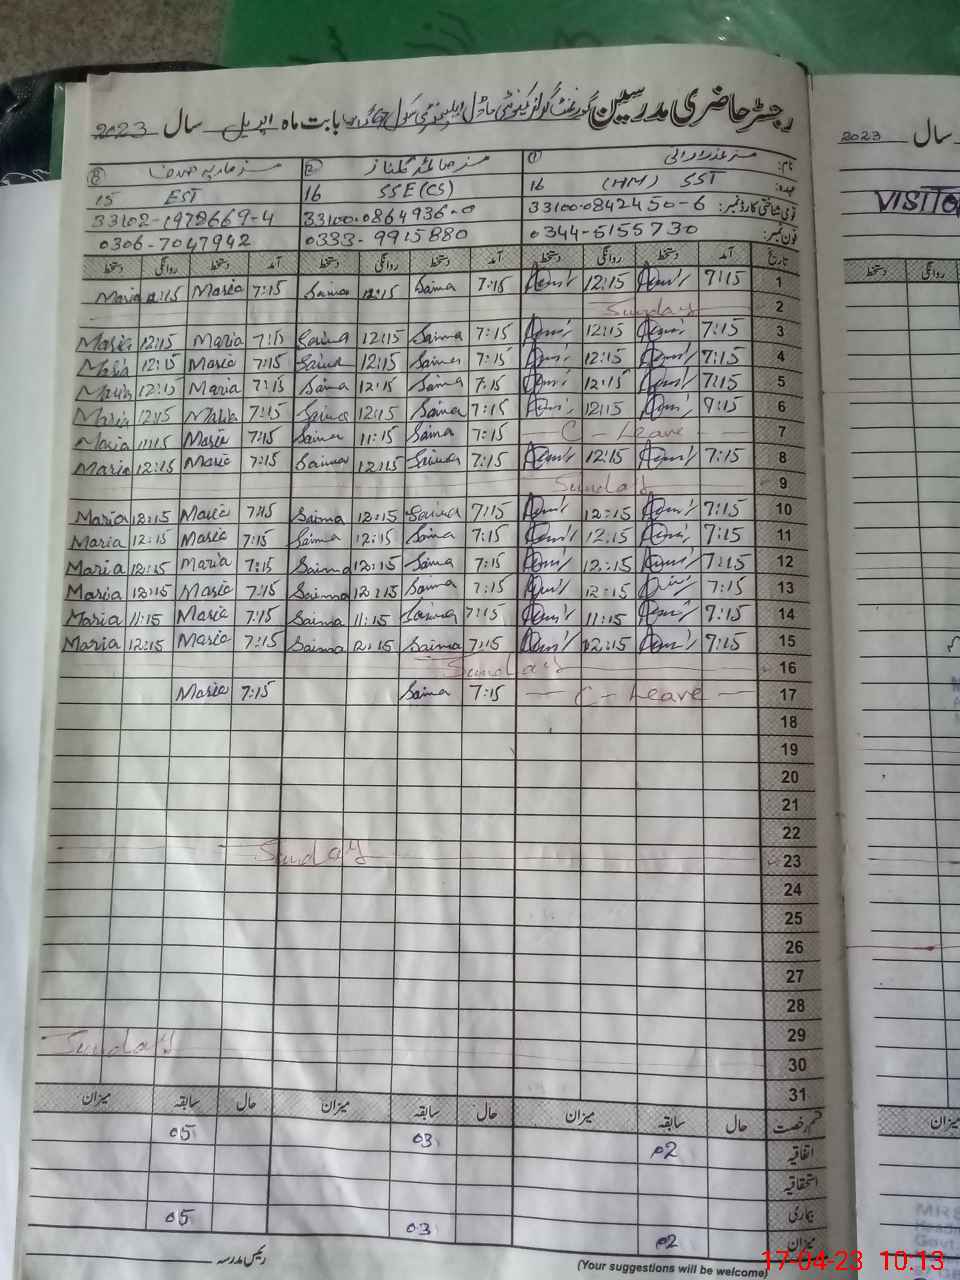 رجسٹر حاضری مدرسین گورنمنٹ کمیونٹی ماڈل ایلیمنٹری سکول بابت ماہ اپریل سال 2023
نام: ① ② ③
عہدہ: SST (HM) 16 SSE(CS) 16 EST 15
قومی شناختی کارڈ نمبر: 33100-0842450-6 33100-0864936-0 33102-1978669-4
فون نمبر: 0344-5155730 0333-9915880 0306-7047942
تاریخ آمد دستخط روانگی دستخط آمد دستخط روانگی دستخط آمد دستخط روانگی دستخط
1 7:15 12:15 7:15 Saima 12:15 Saima 7:15 Maria 12:15 Maria
2 Sunday
3 7:15 12:15 7:15 Saima 12:15 Saima 7:15 Maria 12:15 Maria
4 7:15 12:15 7:15 Saima 12:15 Saima 7:15 Maria 12:15 Maria
5 7:15 12:15 7:15 Saima 12:15 Saima 7:15 Maria 12:15 Maria
6 12:15 7:15 Saima 12:15 Saima 7:15 Maria 12:15 Maria
7 C - Leave 7:15 Saima 11:15 Saima 7:15 Maria 11:15 Maria
8 7:15 12:15 7:15 Saima 12:15 Saima 7:15 Maria 12:15 Maria
9 Sunday
10 7:15 12:15 7:15 Saima 12:15 Saima 7:15 Maria 12:15 Maria
11 7:15 12:15 7:15 Saima 12:15 Saima 7:15 Maria 12:15 Maria
12 7:15 12:15 7:15 Saima 12:15 Saima 7:15 Maria 12:15 Maria
13 7:15 12:15 7:15 Saima 12:15 Saima 7:15 Maria 12:15 Maria
14 7:15 11:15 7:15 Saima 11:15 Saima 7:15 Maria 11:15 Maria
15 7:15 12:15 7:15 Saima 12:15 Saima 7:15 Maria 12:15 Maria
16 Sunday
17 C - Leave 7:15 Saima 7:15 Maria
18
19
20
21
22
23 Sunday
24
25
26
27
28
29
30 Sunday
31
قسم رخصت حال سابقہ میزان حال سابقہ میزان حال سابقہ میزان
اتفاقیہ 02 03 05
استحقاقیہ
بیماری
میزان 02 03 05
رئیس مدرسہ
(Your suggestions will be welcome)
سال 2023
VISITO
روانگی دستخط
میزان
17-04-23 10.13